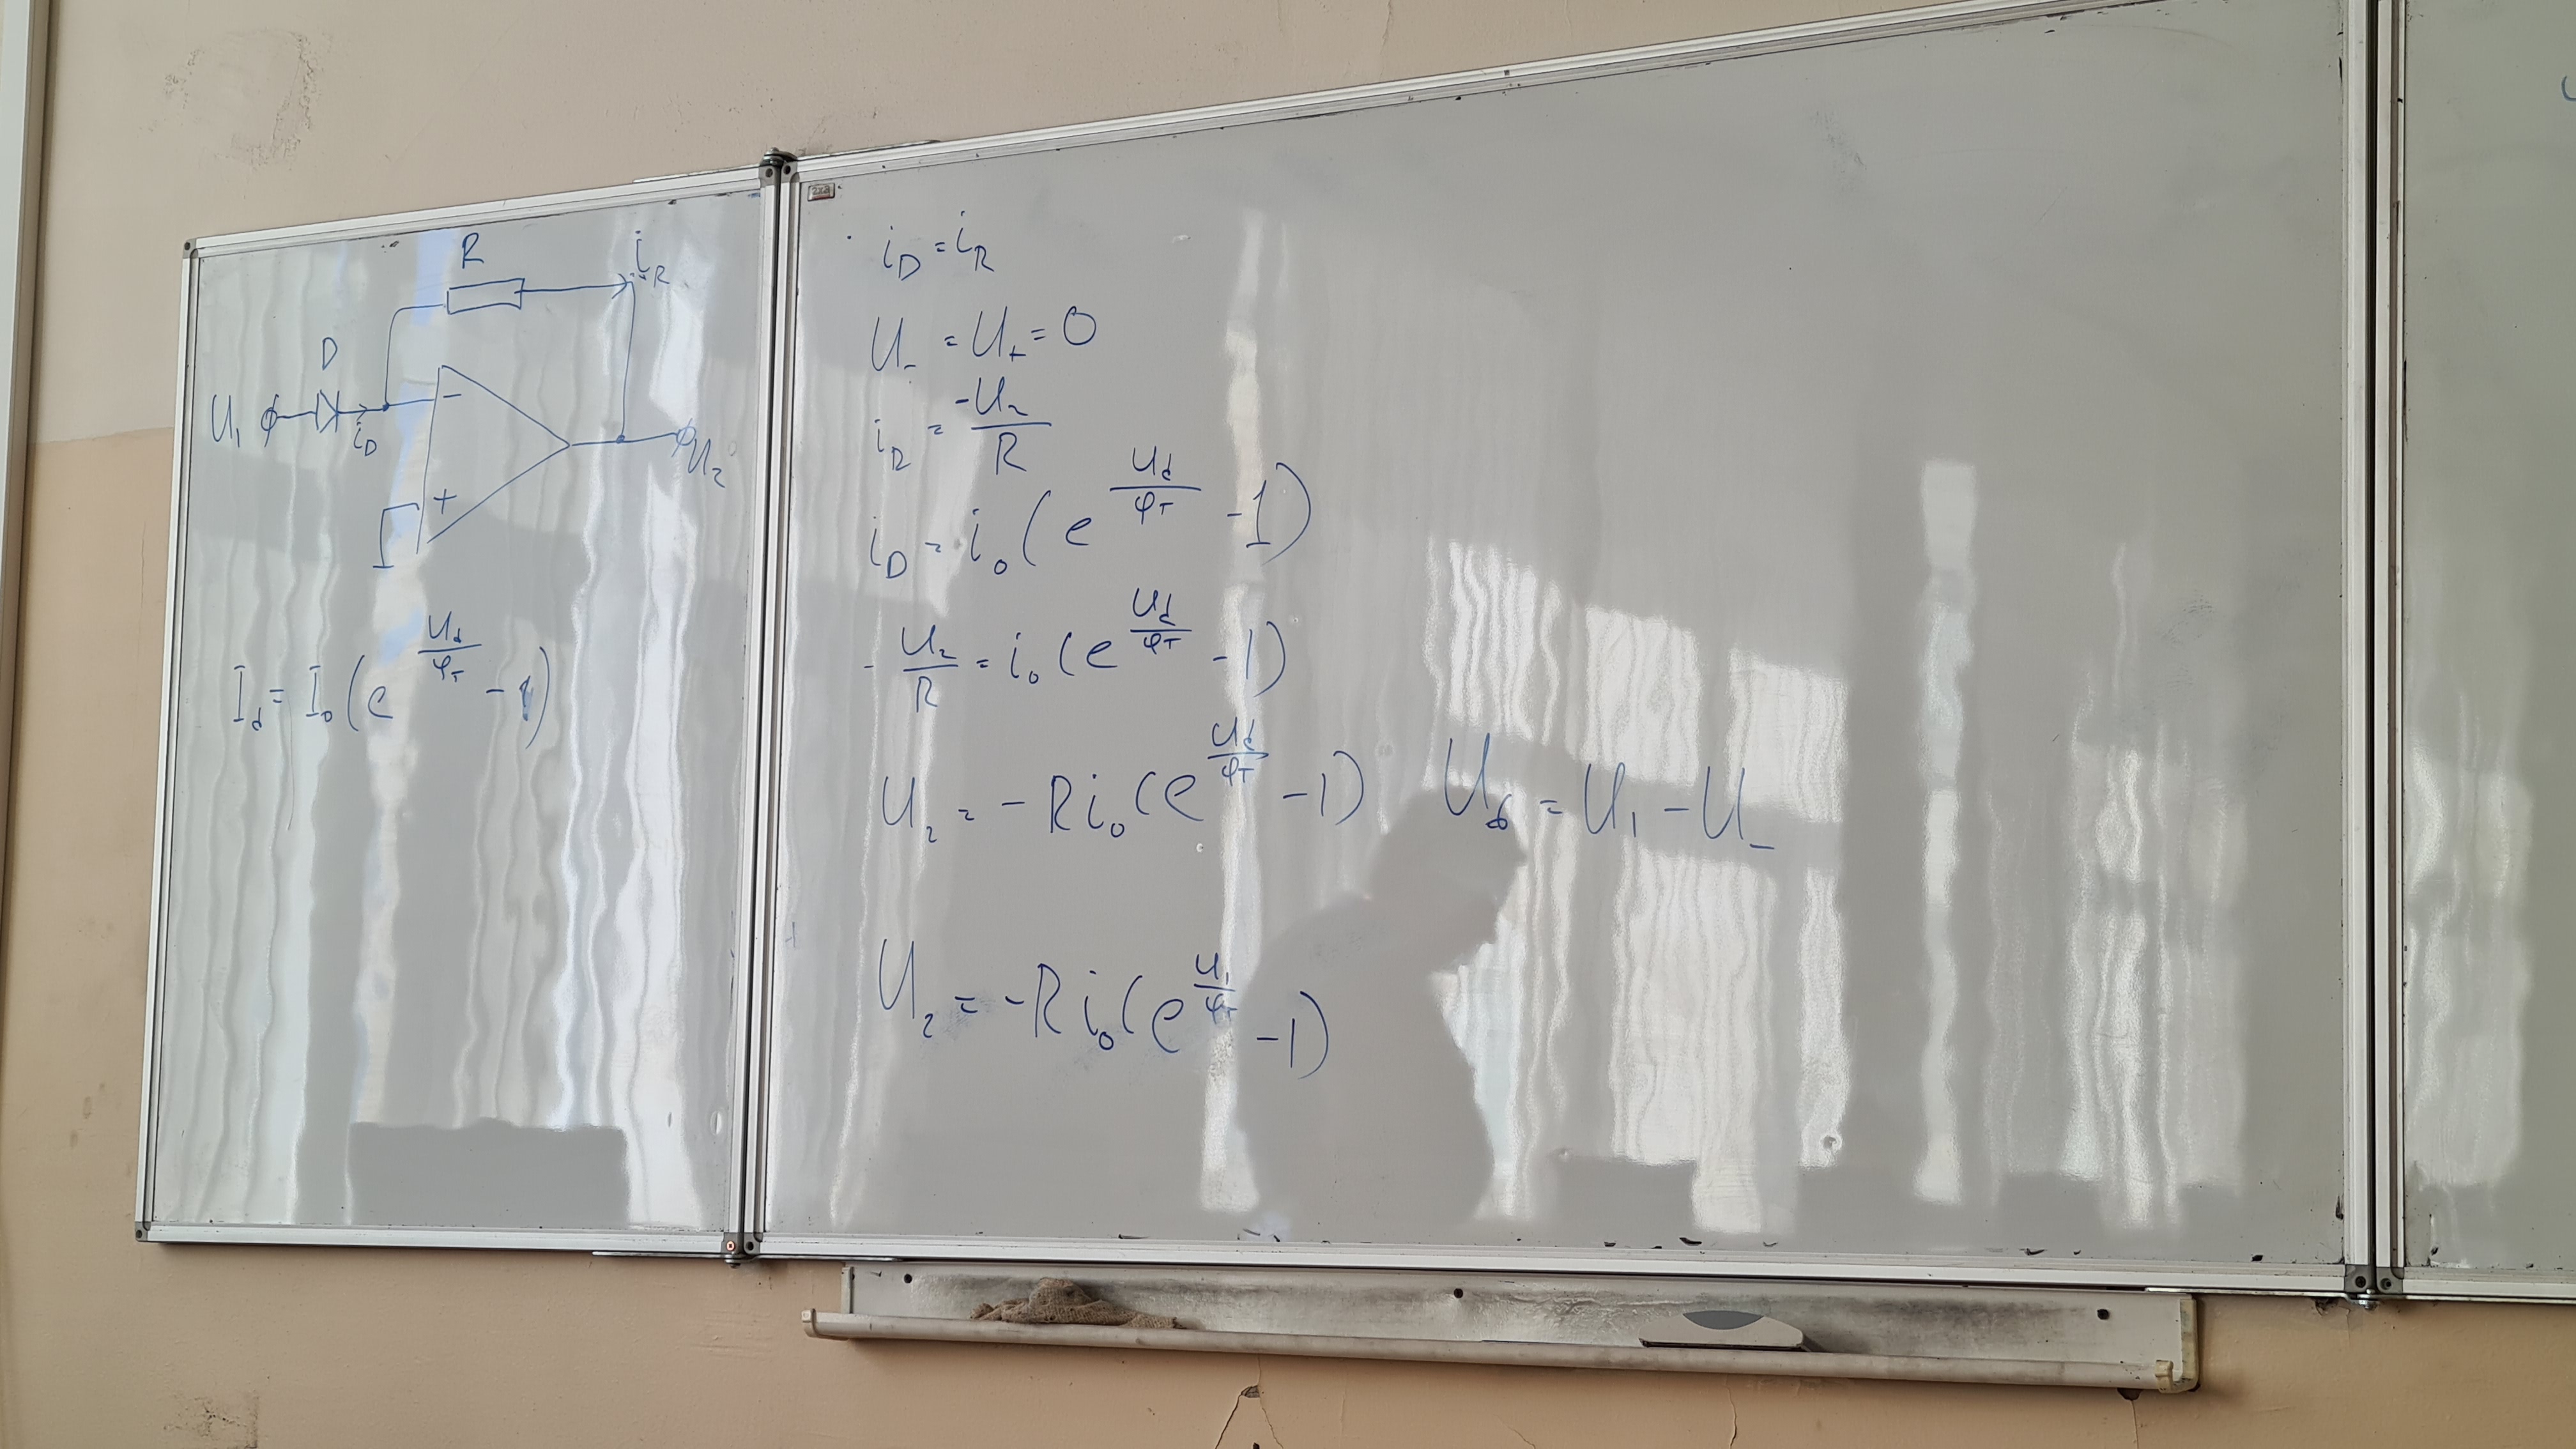 R
i_R
D
U₁
i_D
−
+
U₂
I_d = I₀(e^(U_d/φ_T) − 1)
i_D = i_R
U₋ = U₊ = 0
i_R = −U₂/R
i_D = i₀(e^(U_d/φ_T) − 1)
−U₂/R = i₀(e^(U_d/φ_T) − 1)
U₂ = −Ri₀(e^(U_d/φ_T) − 1) U_d = U₁ − U₋
U₂ = −Ri₀(e^(U₁/φ_T) − 1)